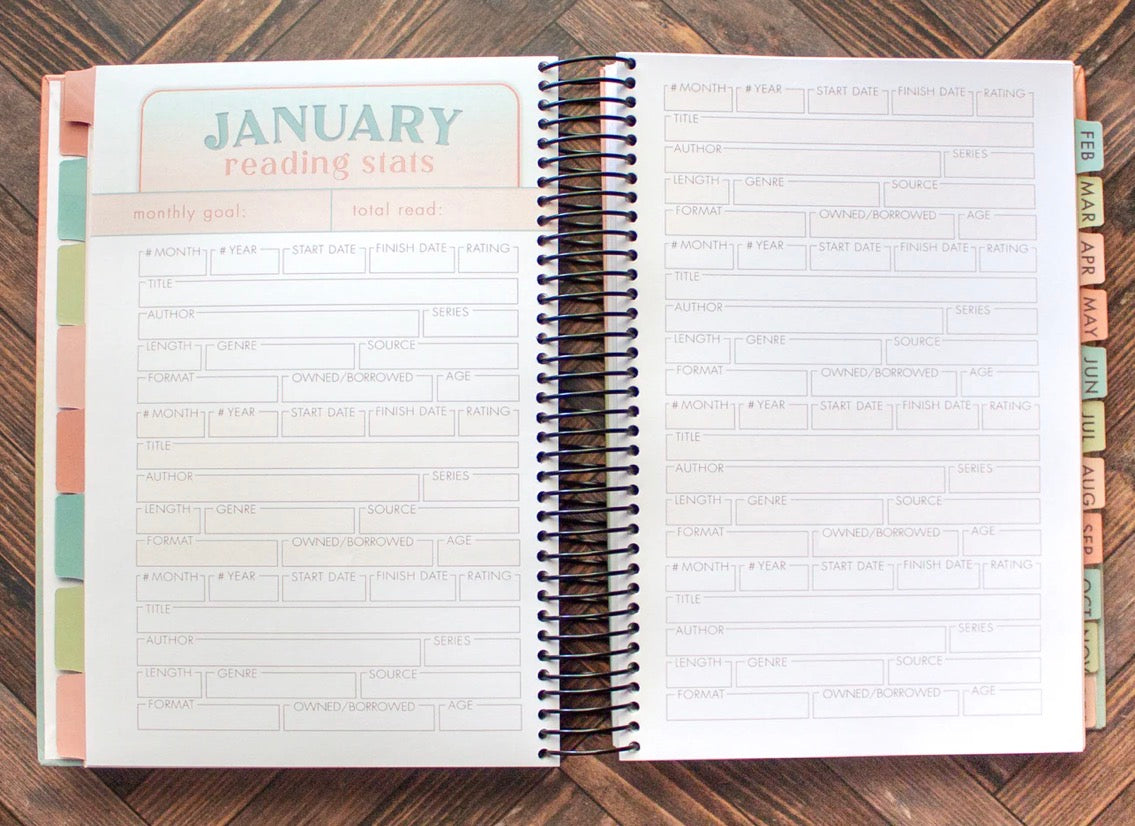 JANUARY
reading stats
monthly goal: total read:
# MONTH # YEAR START DATE FINISH DATE RATING
TITLE
AUTHOR SERIES
LENGTH GENRE SOURCE
FORMAT OWNED/BORROWED AGE
# MONTH # YEAR START DATE FINISH DATE RATING
TITLE
AUTHOR SERIES
LENGTH GENRE SOURCE
FORMAT OWNED/BORROWED AGE
# MONTH # YEAR START DATE FINISH DATE RATING
TITLE
AUTHOR SERIES
LENGTH GENRE SOURCE
FORMAT OWNED/BORROWED AGE
# MONTH # YEAR START DATE FINISH DATE RATING
TITLE
AUTHOR SERIES
LENGTH GENRE SOURCE
FORMAT OWNED/BORROWED AGE
# MONTH # YEAR START DATE FINISH DATE RATING
TITLE
AUTHOR SERIES
LENGTH GENRE SOURCE
FORMAT OWNED/BORROWED AGE
# MONTH # YEAR START DATE FINISH DATE RATING
TITLE
AUTHOR SERIES
LENGTH GENRE SOURCE
FORMAT OWNED/BORROWED AGE
# MONTH # YEAR START DATE FINISH DATE RATING
TITLE
AUTHOR SERIES
LENGTH GENRE SOURCE
FORMAT OWNED/BORROWED AGE
FEB
MAR
APR
MAY
JUN
JUL
AUG
SEP
OCT
NOV